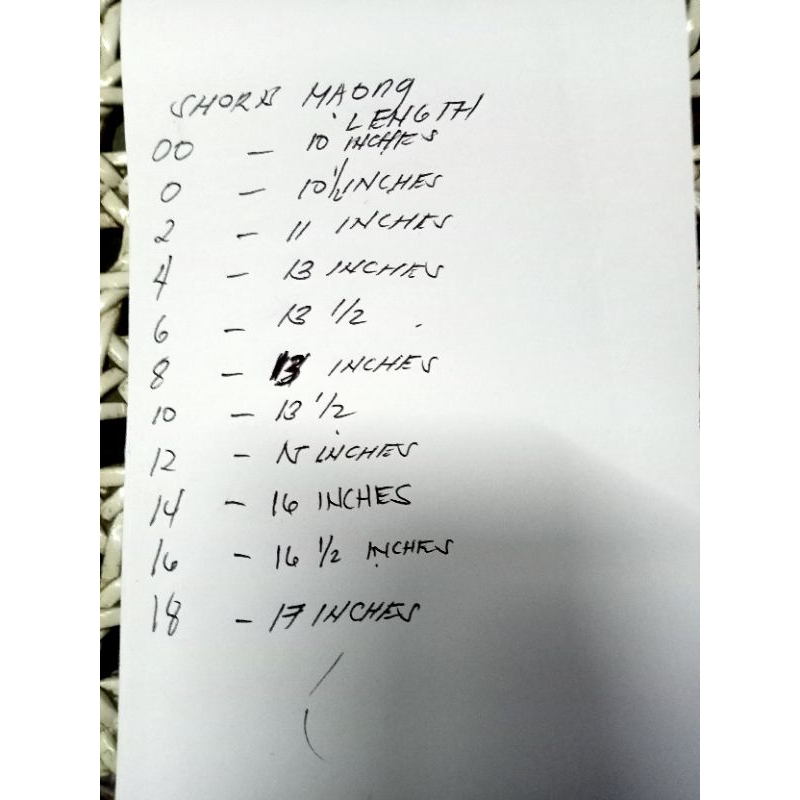 SHORTS MAONG
LENGTH
00 - 10 INCHES
0 - 10 1/2 INCHES
2 - 11 INCHES
4 - 13 INCHES
6 - 13 1/2
8 - 13 INCHES
10 - 13 1/2
12 - 15 INCHES
14 - 16 INCHES
16 - 16 1/2 INCHES
18 - 17 INCHES